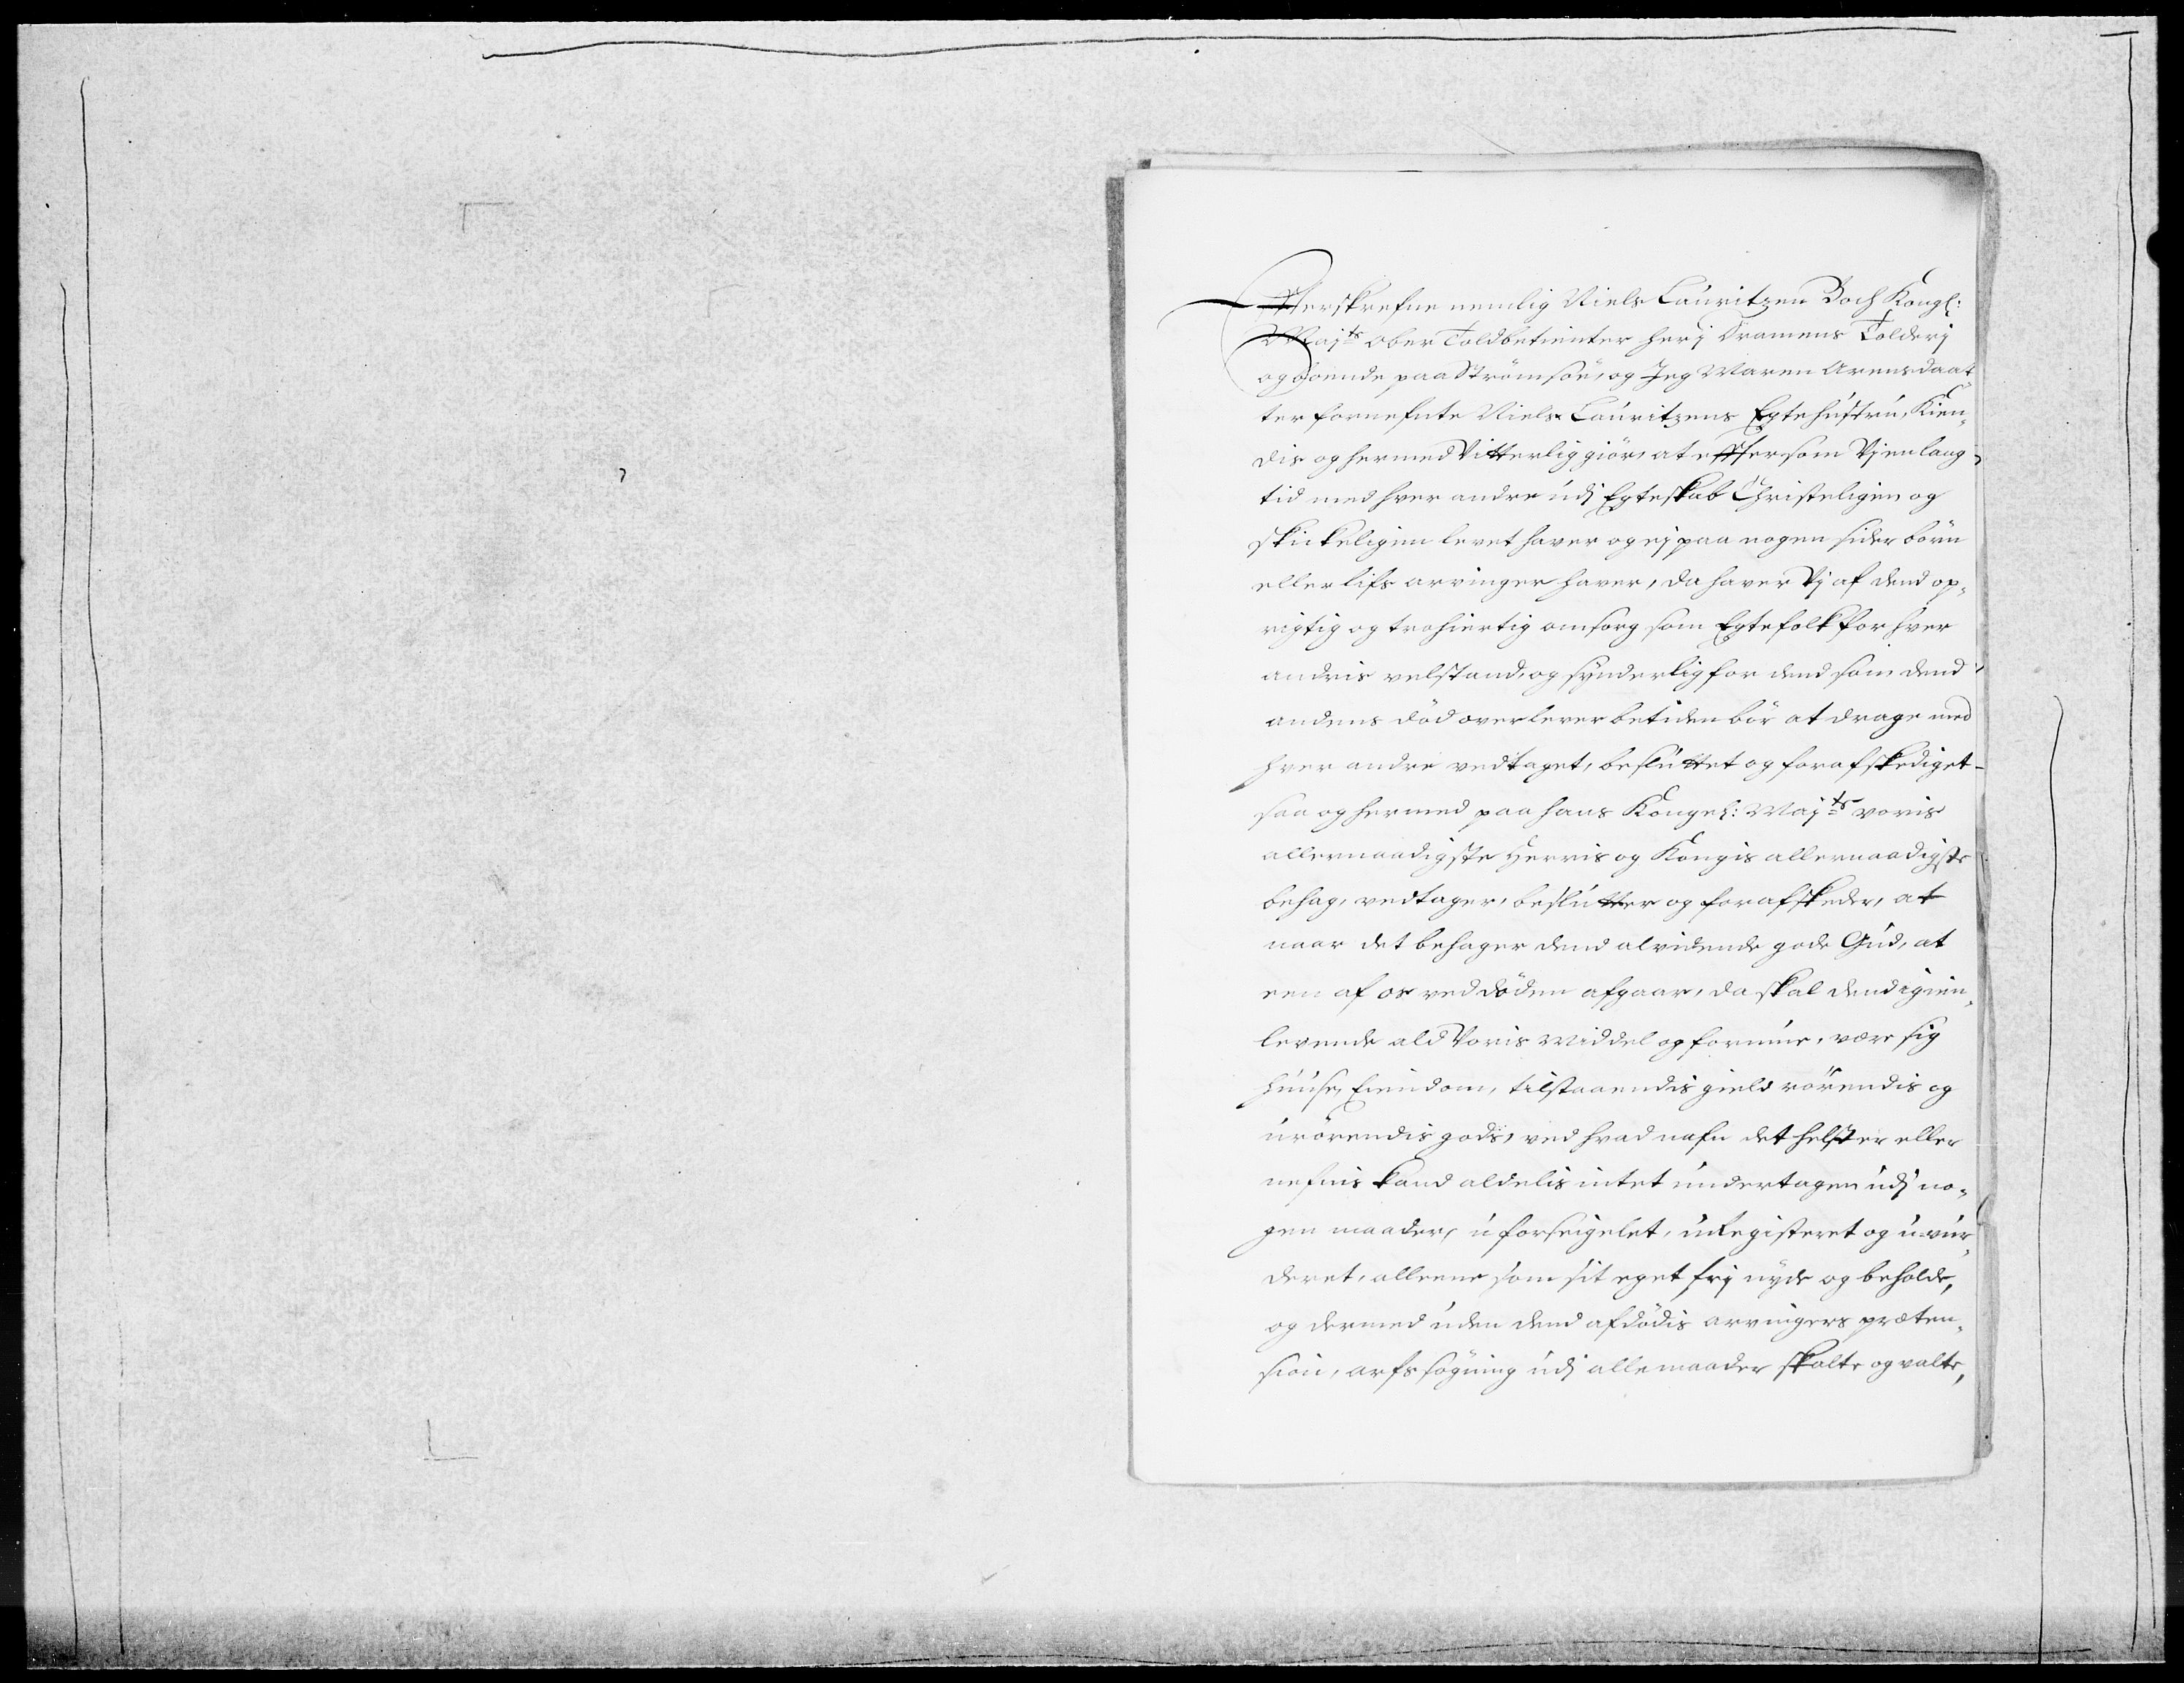 Efterskrefne nemlig Niels Lauritzen Boch Kongl:
Majts ober Toldbetienter her j Dramens Tolderj
og boende paa Strömsöe, og Jeg Maren Arensdaat¬
ter fornefnte Niels Lauritzens Egtehustru, Kien¬
dis og hermed Vitterlig giör, at effter som Vj en lang
tid med hver andre udj Egteskab Christeligen og
skickeligen levet haver og ej paa nogen sider börn
eller lifs arvinger haver, da haver Vj af dend op¬
rigtig og trohiertig omsorg som Egtefolk for hver
andris velstand, og synderlig for dend som dend
andens död overlever betiden bör at drage med
hver andre vedtaget, besluttet og forafskediget
saa og hermed paa hans Kongel: Majts voris
allernaadigste Herris og Kongis allernaadigste
behag, vedtager, beslutter og forafskeder, at
naar det behager dend alvidende gode Gud, at
een af os ved döden afgaar, da skal dend igien¬
levende ald Voris Middel og formue, være sig
huuse, Eiendom, tilstaaendis gield rörendis og
urörendis gods, ved hvad nafn det helst er eller
nefnis kand aldelis intet undertagen udj no¬
gen maader, uforseigelet, uRegisteret og u-vur¬
deret, alleene som sit eget frj nyde og beholde,
og dermed uden dend afdödis arvingers præten¬
sion, arfs sögning udj alle maader skalte og valte,